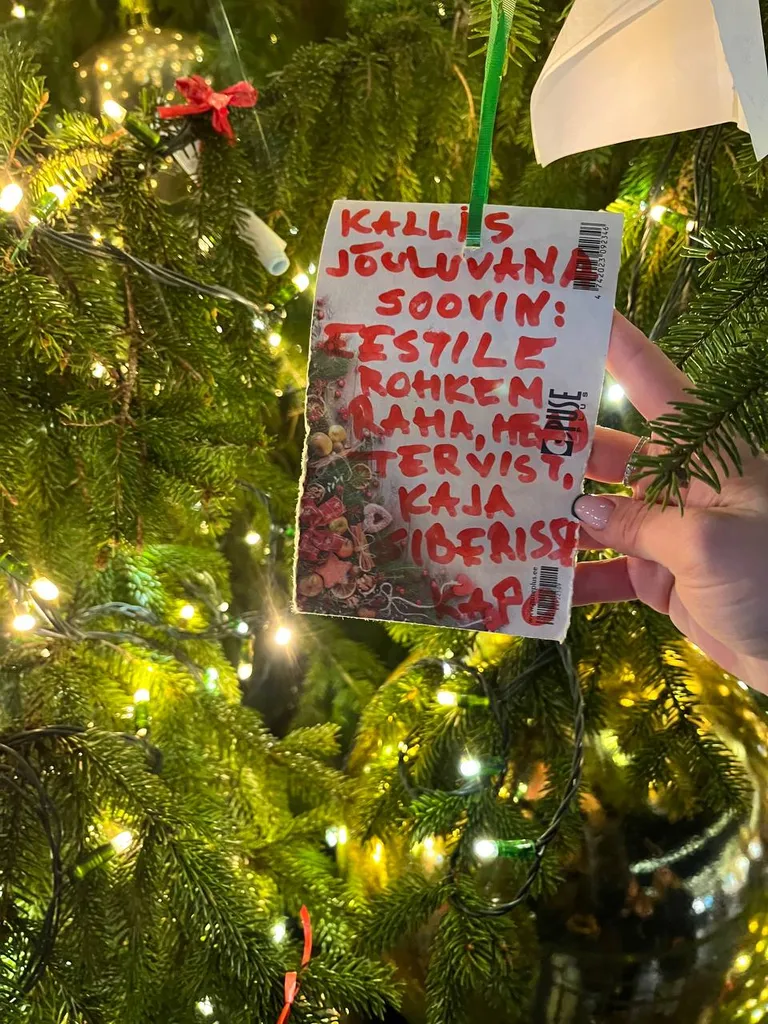 KALLIS
JÕULUVANA
SOOVIN:
EESTILE
ROHKEM
RAHA, HEAD
TERVIST,
KAJA
SIBERISSE
KAPO
4 742023 092346